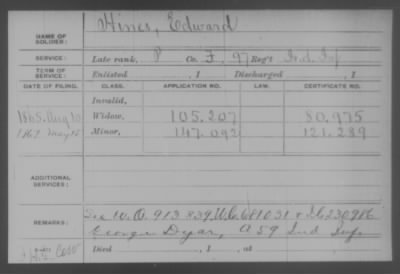 NAME OF SOLDIER: Hines, Edward
SERVICE: Late rank, P Co. F, 97 Reg't Ind. Inf
TERM OF SERVICE: Enlisted , 1 Discharged , 1
DATE OF FILING. CLASS. APPLICATION NO. LAW. CERTIFICATE NO.
Invalid,
1865 Aug 10 Widow, 105.207 80.975
1867 May 15 Minor, 147.092 121.289
ADDITIONAL SERVICES:
REMARKS: See W.O. 913839 W.C. 681031 & I.C. 230986
George Dyar, A 59 Ind Inf.
Died , 1 , at